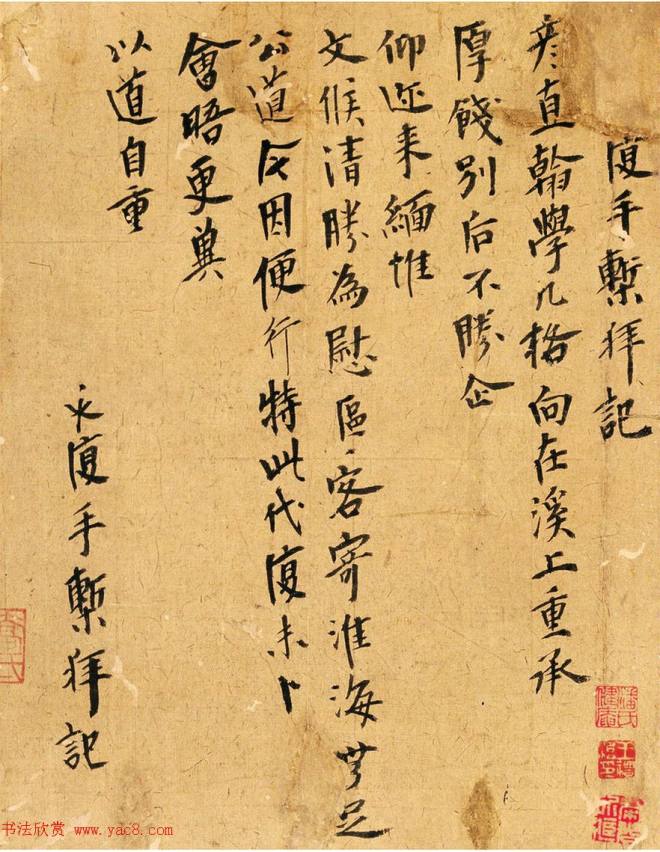 復手槧拜記
彦直翰學几格向在溪上重承
厚餞別后不勝企
仰迩来緬惟
文候清勝為慰區〻客寄淮海無足
公道因便行特此代復未卜
會晤更冀
以道自重
復手槧拜記
书法欣赏 www.yac8.com